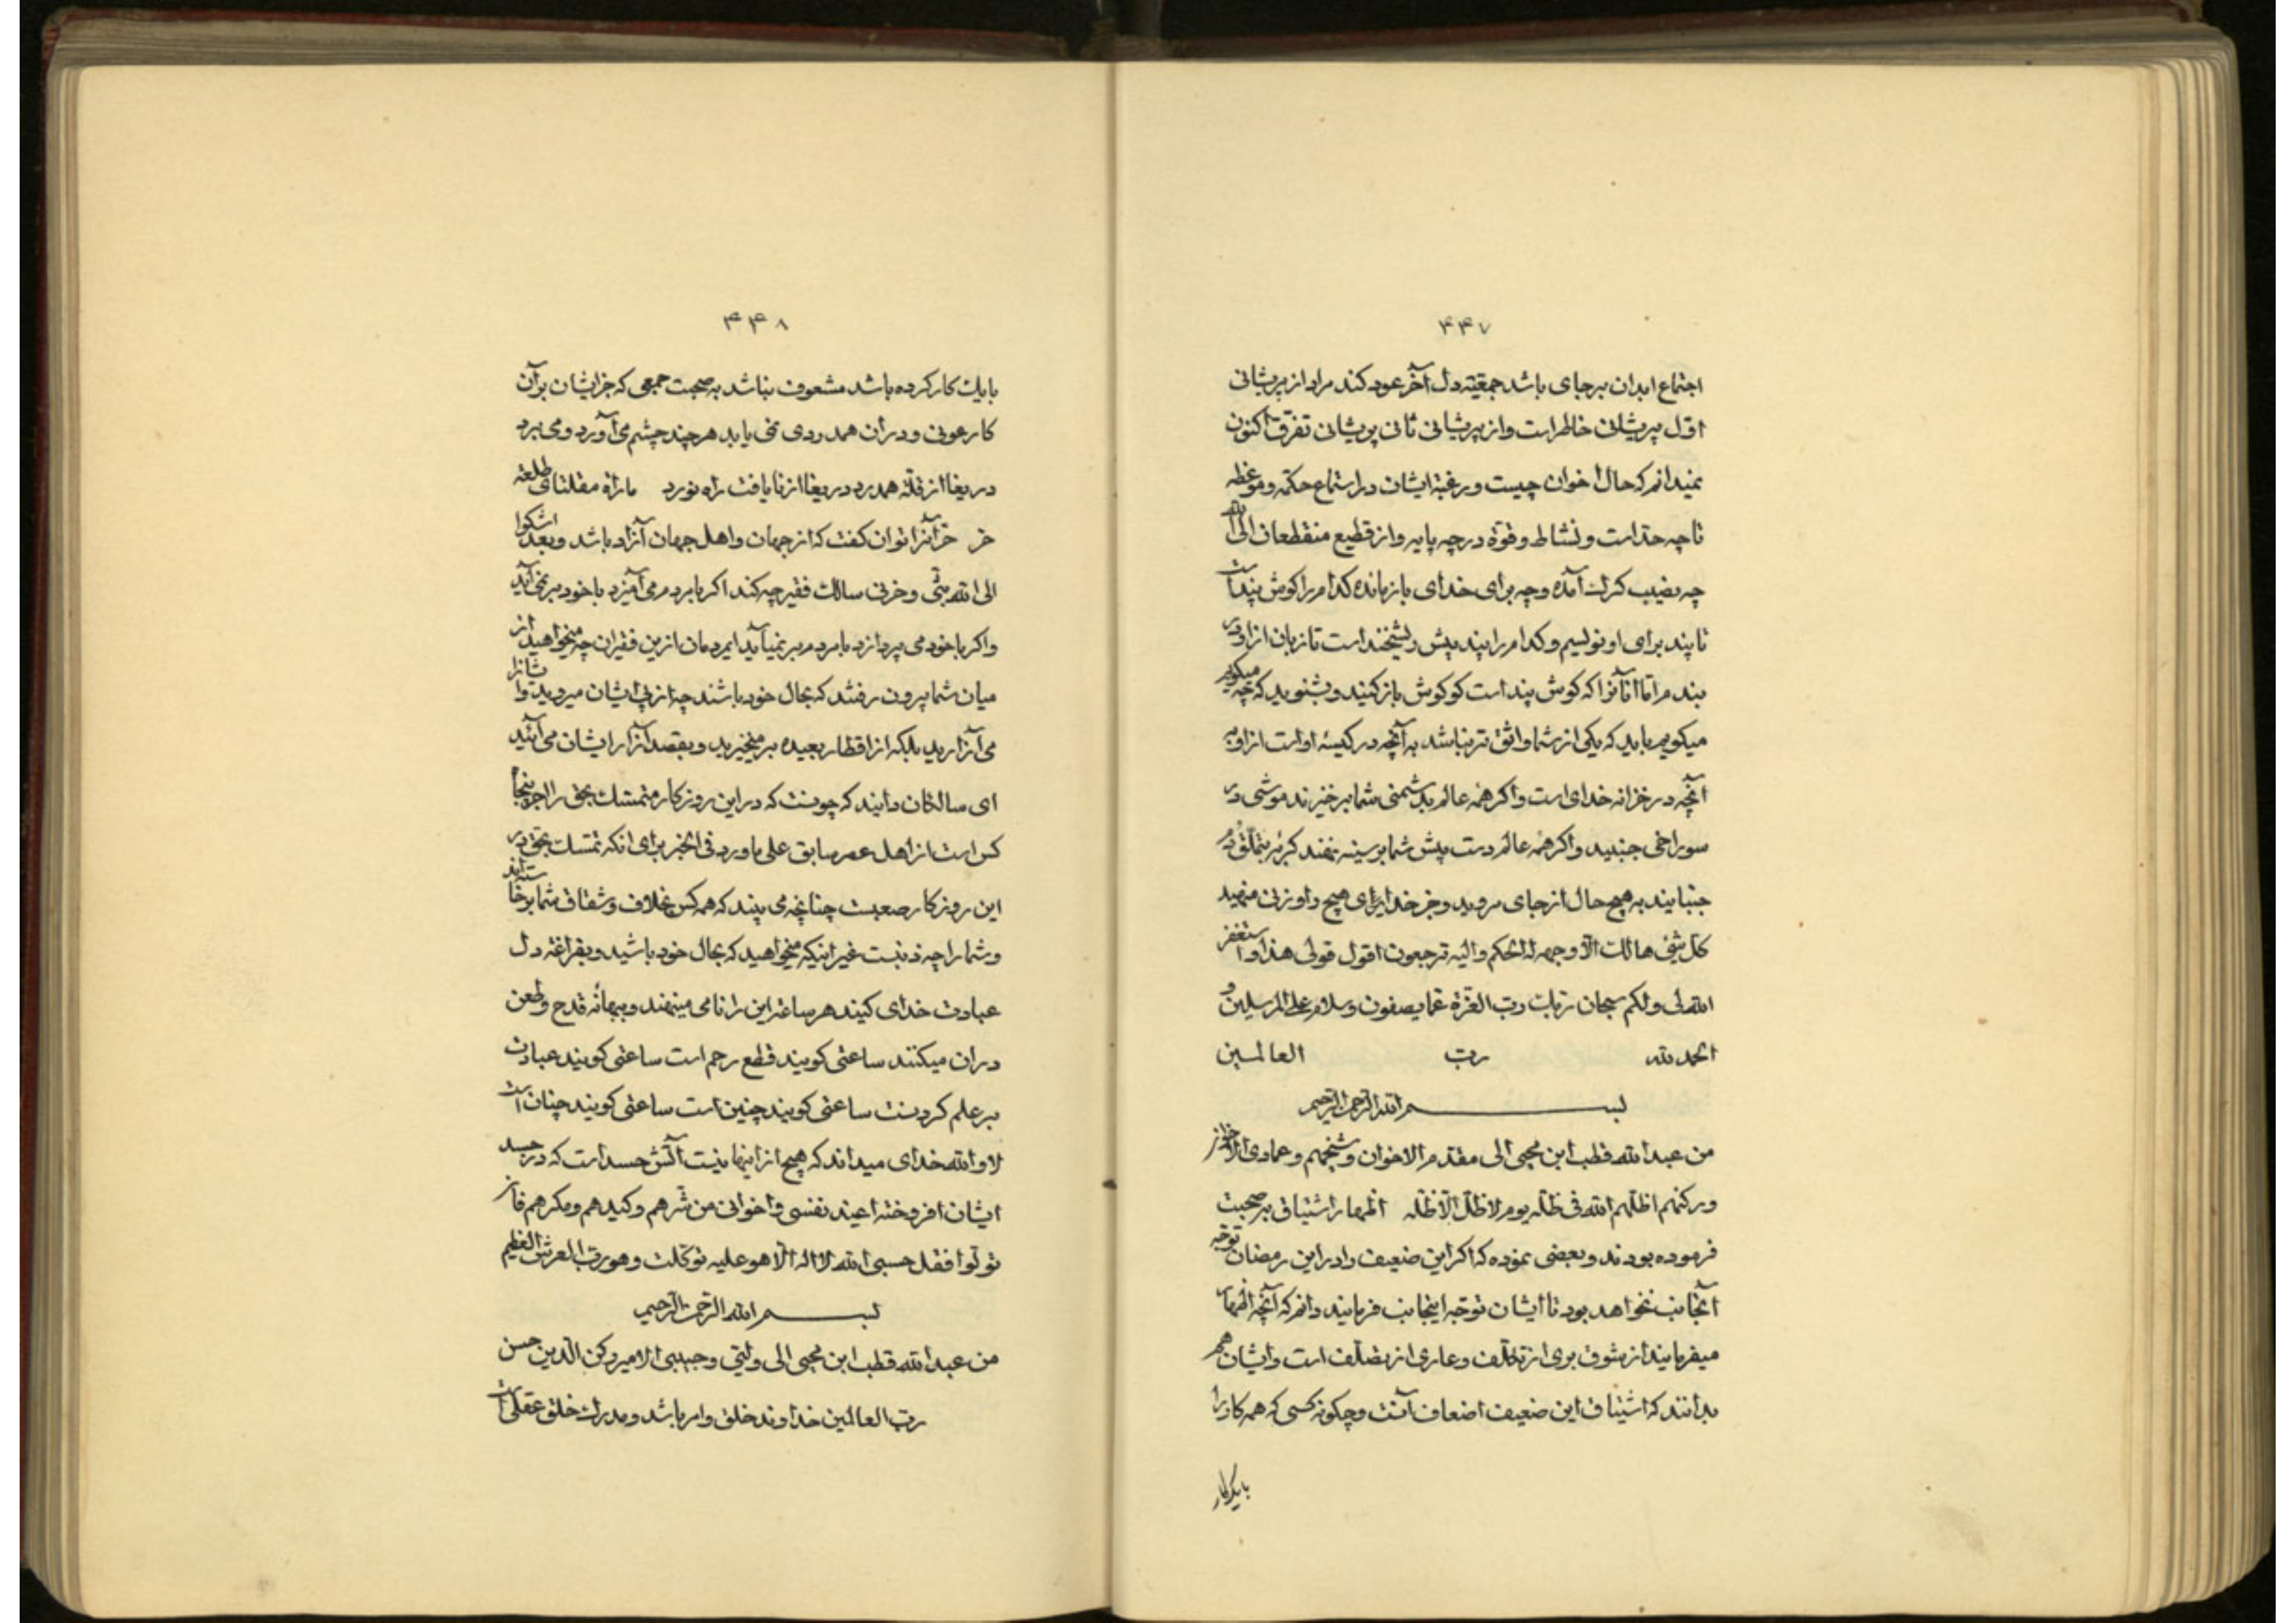 ۴۴۷
اجتماع ابدان برجای باشد جمعیته دل آخر عود کند مراد از پریشانی
اوّل پریشانی خاطر است و از پریشانی ثانی پریشانی تفرق اکنون
نمیدانم که حال اخوان چیست و رغبة ایشان در استماع حکمة و موعظه
تا چه حد است و نشاط و قوة در چه پایه و از قطیع منقطعان الی الله
چه نصیب کرك آمده و چه برای خدای باز مانده کدام را کوش پند است
تا پند برای او نویسم و کدام را پند پیش ریشخند است تا زبان از او در
بندم امّا آنانرا که کوش پند است کو کوش باز کنید و بشنوید که چه میکویم
میکویم باید که یکی از شما واثق تر نباشد به آنچه در کیسهٔ او است از او به
آنچه در خزانه خدای است و اکر همهٔ عالم بدشمنی شما برخیزند موشی در
سوراخی جنبید و اکر همهٔ عالم دست پیش شما بر سینه نهند کربهٔ بتملق دم
جنبانید به هیچ حال از جای مروید و جز خدایرای هیچ داو زنی منهید
کل شیء هالك الّا وجهه له الحکم و الیه ترجعون اقول قولی هذا و استغفر
الله لی و لکم سبحان ربك ربّ العزّة عمّا یصفون و سلام علی المرسلین و
الحمد لله ربّ العالمین
بسم الله الرّحمن الرّحیم
من عبد الله قطب ابن محیی الی مقدّم الاخوان و شیخهم و عمادی الاخوان
و رکنهم اظلّهم الله فی ظلّه یوم لا ظلّ الّا ظلّه اظهار اشتیاق بر صحبت
فرموده بودند و بعضی نموده که اکر این ضعیف را در این رمضان توجّه
آنجانب نخواهد بود تا ایشان توجّه اینجانب فرمایند دانم که آنچه اظهار
میفرمایند از شوق بری از تکلّف و عاری از تصلّف است و ایشان هم
بدانند که اشتیاق این ضعیف اضعاف آنست و چکونه کسی که همه کار را
بایك کار
۴۴۸
بایك کار کرده باشد مشعوف نباشد به صحبت جمعی که جز ایشان بر آن
کار عونی و در آن همدردی نمی یابد هر چند چشم می آورد و می برد
دریغا از قلّة همدرد دریغا از نایافت راه نورد ما راة مقلتای طلعة
حر حر آنرا توان کفت که از جهان و اهل جهان آزاد باشد و بعد اشکوا
الی الله بثّی و حزنی سالك فقیر چه کند اکر با مردم می آمیزد با خود بر نمی آید
و اکر با خود می پردازد با مردم بر نمیآید ایمردمان از این فقیران چه میخواهید از
میان شما بیرون رفتند که بحال خود باشند چه از پی ایشان میروید و ایشانرا
می آزارید بلکه از اقطار بعیده بر میخیزید و بقصد آزار ایشان می آئید
ای سالکان دانید که چونست که در این روزکار متمسّك بحق را اجر پنجاه
کس است از اهل عصر سابق علی ما ورد فی الخبر برای انکه تمسّك بحق در
این روزکار صعبست چنانچه می بینید که همه کس بخلاف و شقاق شما برخاسته اند
و شما را چه ذنبست غیر اینکه میخواهید که بحال خود باشید و بفراغة دل
عبادت خدای کنید هر ساعة این را نامی مینهند و ببهانهٔ قدح و طعن
در ان میکنند ساعتی کویند قطع رحم است ساعتی کویند عبادت
بر علم کردنست ساعتی کویند چنین است ساعتی کویند چنان است
لا و الله خدای میداند که هیچ از اینها نیست آتش حسد است که در جسد
ایشان افروخته اعیذ نفسی و اخوانی من شرّهم و کیدهم و مکرهم فان
تولّوا فقل حسبی الله لا اله الّا هو علیه توکّلت و هو ربّ العرش العظیم
بسم الله الرّحمن الرّحیم
من عبد الله قطب ابن محیی الی ولیّی و حبیبی الامیر رکن الدّین حسن
ربّ العالمین خداوند خلق و امر باشد و مدرك خلق عقل است